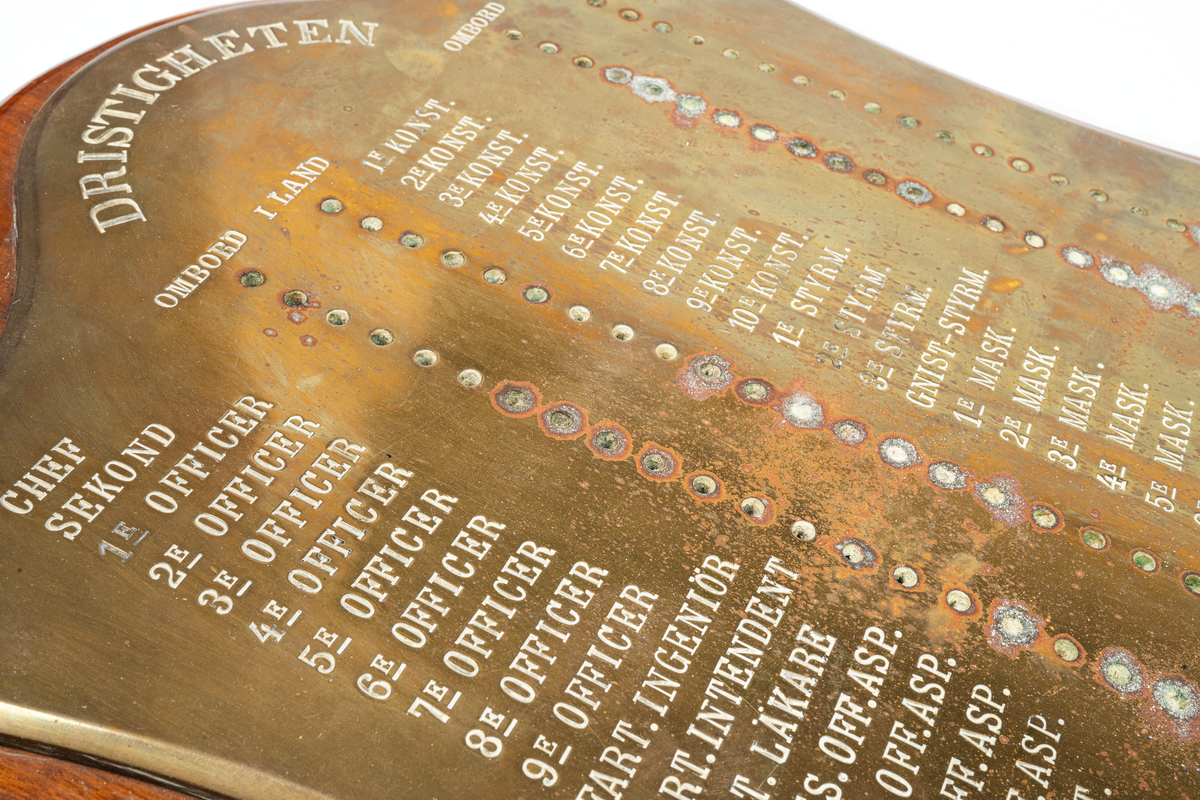 DRISTIGHETEN
OMBORD
I LAND
OMBORD
CHEF
SEKOND
1E OFFICER
2E OFFICER
3E OFFICER
4E OFFICER
5E OFFICER
6E OFFICER
7E OFFICER
8E OFFICER
9E OFFICER
MART. INGENIÖR
INTENDENT
LÄKARE
OFF.ASP.
OFF.ASP.
ASP.
ASP.
1E KONST.
2E KONST.
3E KONST.
4E KONST.
5E KONST.
6E KONST.
7E KONST.
8E KONST.
9E KONST.
10E KONST.
1E STYRM.
2E STYRM.
3E STYRM.
GNIST-STYRM.
1E MASK.
2E MASK.
3E MASK.
4E MASK.
5E MASK.